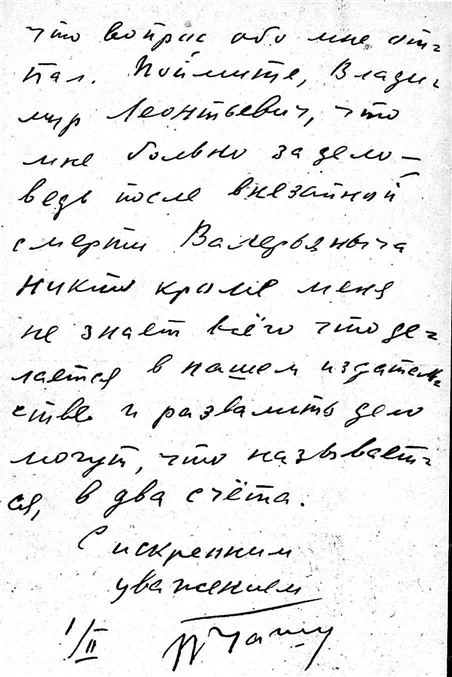 что вопрос обо мне от-
пал. Поймите, Влади-
мир Леонтьевич, что
мне больно за дело –
ведь после внезапной
смерти Валерьяныча
никто кроме меня
не знает всего что де-
лается в нашем издатель-
стве и развалить дело
могут, что называет-
ся, в два счёта.
С искренним
уважением
1/II